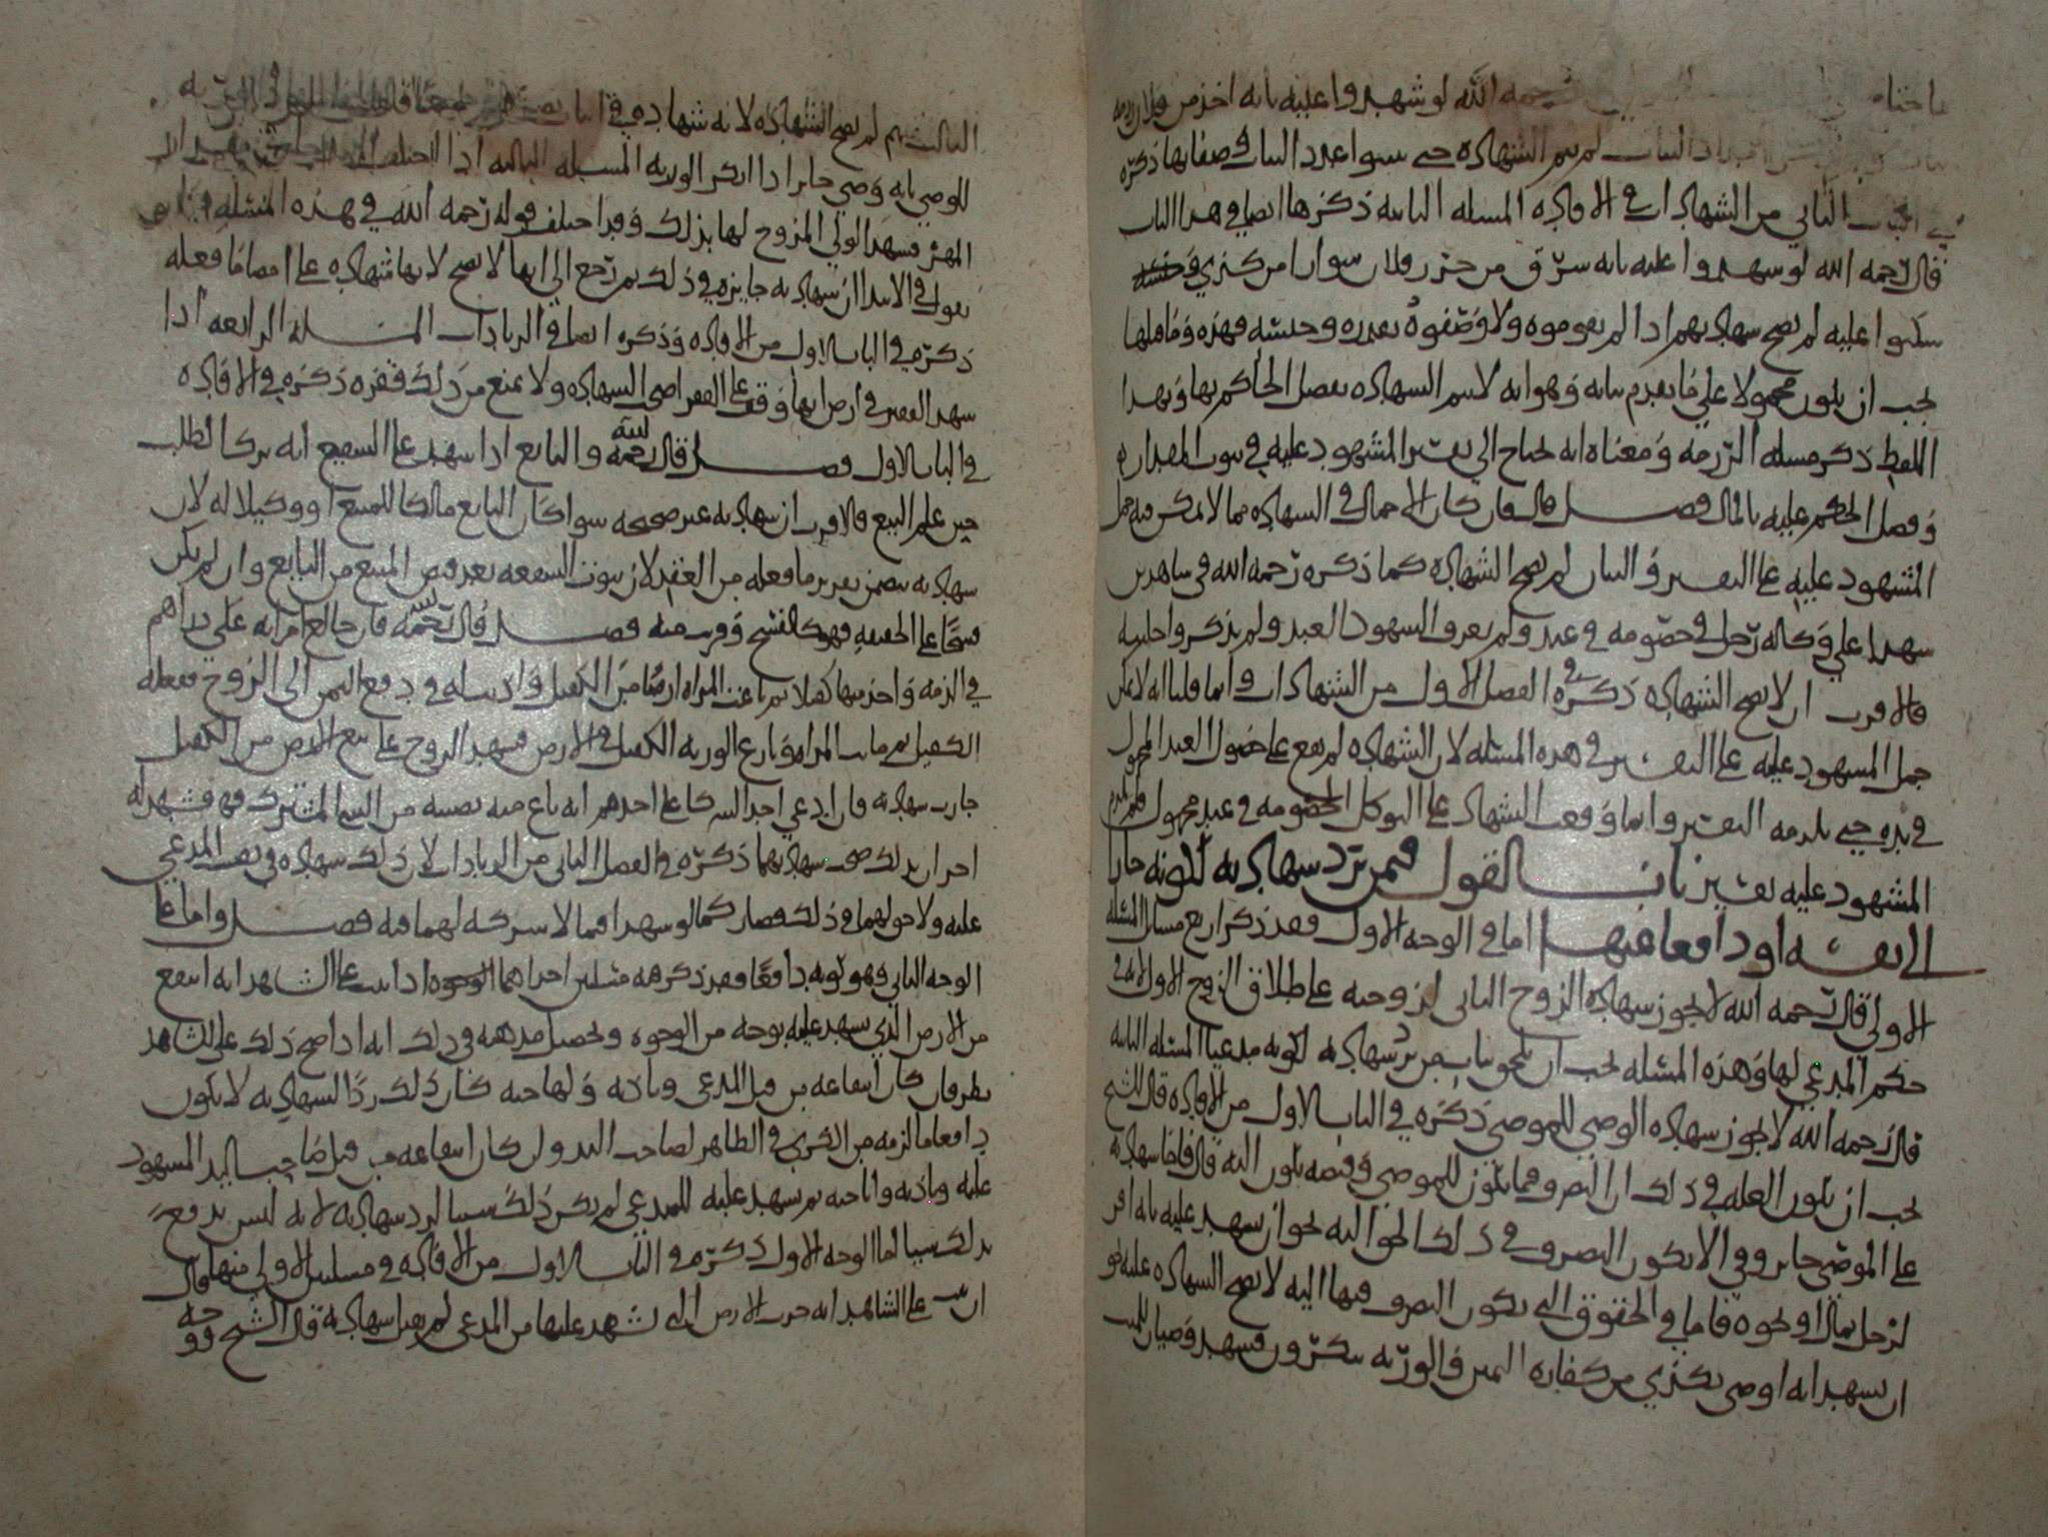 رحمه الله لو شهدوا عليه بانه اخذ من فلان
لم تتم الشهاده حتى
الثاني من الشهادات في الافاده المسله الثانيه ذكرها ايضا في هذا الباب
قال رحمه الله لو شهدوا عليه بانه سرق من حرز فلان سوارا من كذي
سكتوا عليه لم يصح شهادتهم اذا لم يقوموه ولا وصفوه بقدره وجنسه فهذه وما قبلها
يجب ان يكون محمولا على ما تقدم بيانه وهو انه لا يتم الشهاده بفصل الحاكم بها وبهذا
اللفظ ذكر مسله الرزمه ومعناه انه يحتاج الى تفسير المشهود عليه في ثبوت المقدار
وفصل الحكم عليه بالمال فصل قال فان كان الاجمال في الشهاده مما لا يمكن فيه حمل
المشهود عليه على التفسير والبيان لم يصح الشهاده كما ذكره رحمه الله في شاهدين
شهدا على وكاله رجل في خصومه في عبد ولم يعرف الشهود العبد ولم يذكروا حليته
فالاقرب ان لا يصح الشهاده ذكره في الفصل الاول من الشهادات وانما قلنا انه لا يمكن
حمل المشهود عليه على التفسير في هذه المسله لان الشهاده لم تقع على حصول العبد المجهول
في يده حتى يلزمه التفسير وانما وقعت الشهاده على التوكل الخصومه في عبد مجهول فلم يلزم
المشهود عليه تفسير باب القول فيمن ترد شهادته لكونه جارا
الى نفسه او دافعا عنها اما في الوجه الاول فقد ذكر اربع مسايل المسله
الاولى قال رحمه الله لا يجوز شهاده الزوج الثاني لزوجته على طلاق الزوج الاول لانه في
حكم المدعي لها وهذه المسله يجب ان تلحق بباب من ترد شهادته لكونه مدعيا المسله الثانيه
قال رحمه الله لا يجوز شهاده الوصي للموصي ذكره في الباب الاول من الافاده قال الشيخ
يجب ان يكون العله في ذلك ان التصرف فيما يكون للموصي وقبضه يكون اليه قال فاما شهادته
على الموصي جايز وفي الا يكون التصرف في ذلك الحق اليه نحو ان شهد عليه بانه اقر
لرجل بمال او نحوه فاما في الحقوق التي يكون التصرف فيها اليه لا يصح الشهاده عليه نحو
ان يشهد انه اوصى بكذي من كفاره اليمين والورثه ينكرون فشهد وصيان للميت
الثالث بم لم يصح الشهاده لانه شهاده في اثبات
للوصي بانه وصي جايز اذا انكر الورثه المسله الثالثه اذا اختلف
المهر فشهد الولي المزوج لها بذلك وقد اختلف قوله رحمه الله في هذه المسله
يقول في الابتدا ان شهادته جايزه في ذلك ثم رجع الى انها لا يصح لانها شهاده على امضا ما فعله
ذكره في الباب الاول من الافاده وذكره ايضا في الزيادات المسله الرابعه اذا
شهد الفقير في ارض انها وقف على الفقرا صحت الشهاده ولا يمنع من ذلك فقره ذكره في الافاده
في الباب الاول فصل قال رحمه الله والبايع اذا شهد على الشفيع انه ترك الطلب
حين علم البيع فالاقرب ان شهادته غير صحيحه سوا كان البايع مالكا للمبيع او وكيلا له لان
شهادته يتضمن تقرير ما فعله من العقد لان ثبوت الشفعه بعد قبض المبيع من البايع وان لم يكن
فسخا على الحقيقه فهو كالفسخ وقريب منه فصل قال رحمه الله فان خالع امراته على دراهم
في الذمه واخذ منها كفيلا ثم باعت المراه ارضا من الكفيل وارسله في دفع الثمن الى الزوج ففعله
الكفيل ثم ماتت المراه ونازع الورثه الكفيل في الارض فشهد الزوج على بيع الارض من الكفيل
جازت شهادته فان ادعى احد الشركا على احدهم انه باع منه نصيبه من الشي المشترك فيه فشهد له
اخران بذلك صحت شهادتهما ذكره في الفصل الثاني من الزيادات لان ذلك شهاده في نصيب المدعي
عليه ولا حق لهما في ذلك فصار كما لو شهدا فيما لا شركه لهما فيه فصل واما على
الوجه الثاني فهو كونه دافعا فقد ذكر فيه مسلتين احداهما اذا ثبت على الشاهد انه انتفع
من الارض الذي شهد عليه بوجه من الوجوه وتحصيل مذهبه في ذلك انه اذا صح ذلك على الشاهد
نظر فان كان انتفاعه من قبل المدعي وباذنه واباحته كان ذلك ردا لشهادته لا يكون
دافعا ما لزمه من الكرى في الظاهر لصاحب اليد وان كان انتفاعه من قبل صاحب اليد المشهود
عليه وباذنه واباحته ثم شهد عليه للمدعي لم يكن ذلك سببا لرد شهادته لانه ليس يدفع
بذلك شيا اما الوجه الاول ذكره في الباب الاول من الافاده في مسلتين الاولى منهما قال
ان ثبت على الشاهد انه حرث الارض التي شهد عليها من المدعي لم يقبل شهادته قال الشيخ ووجه